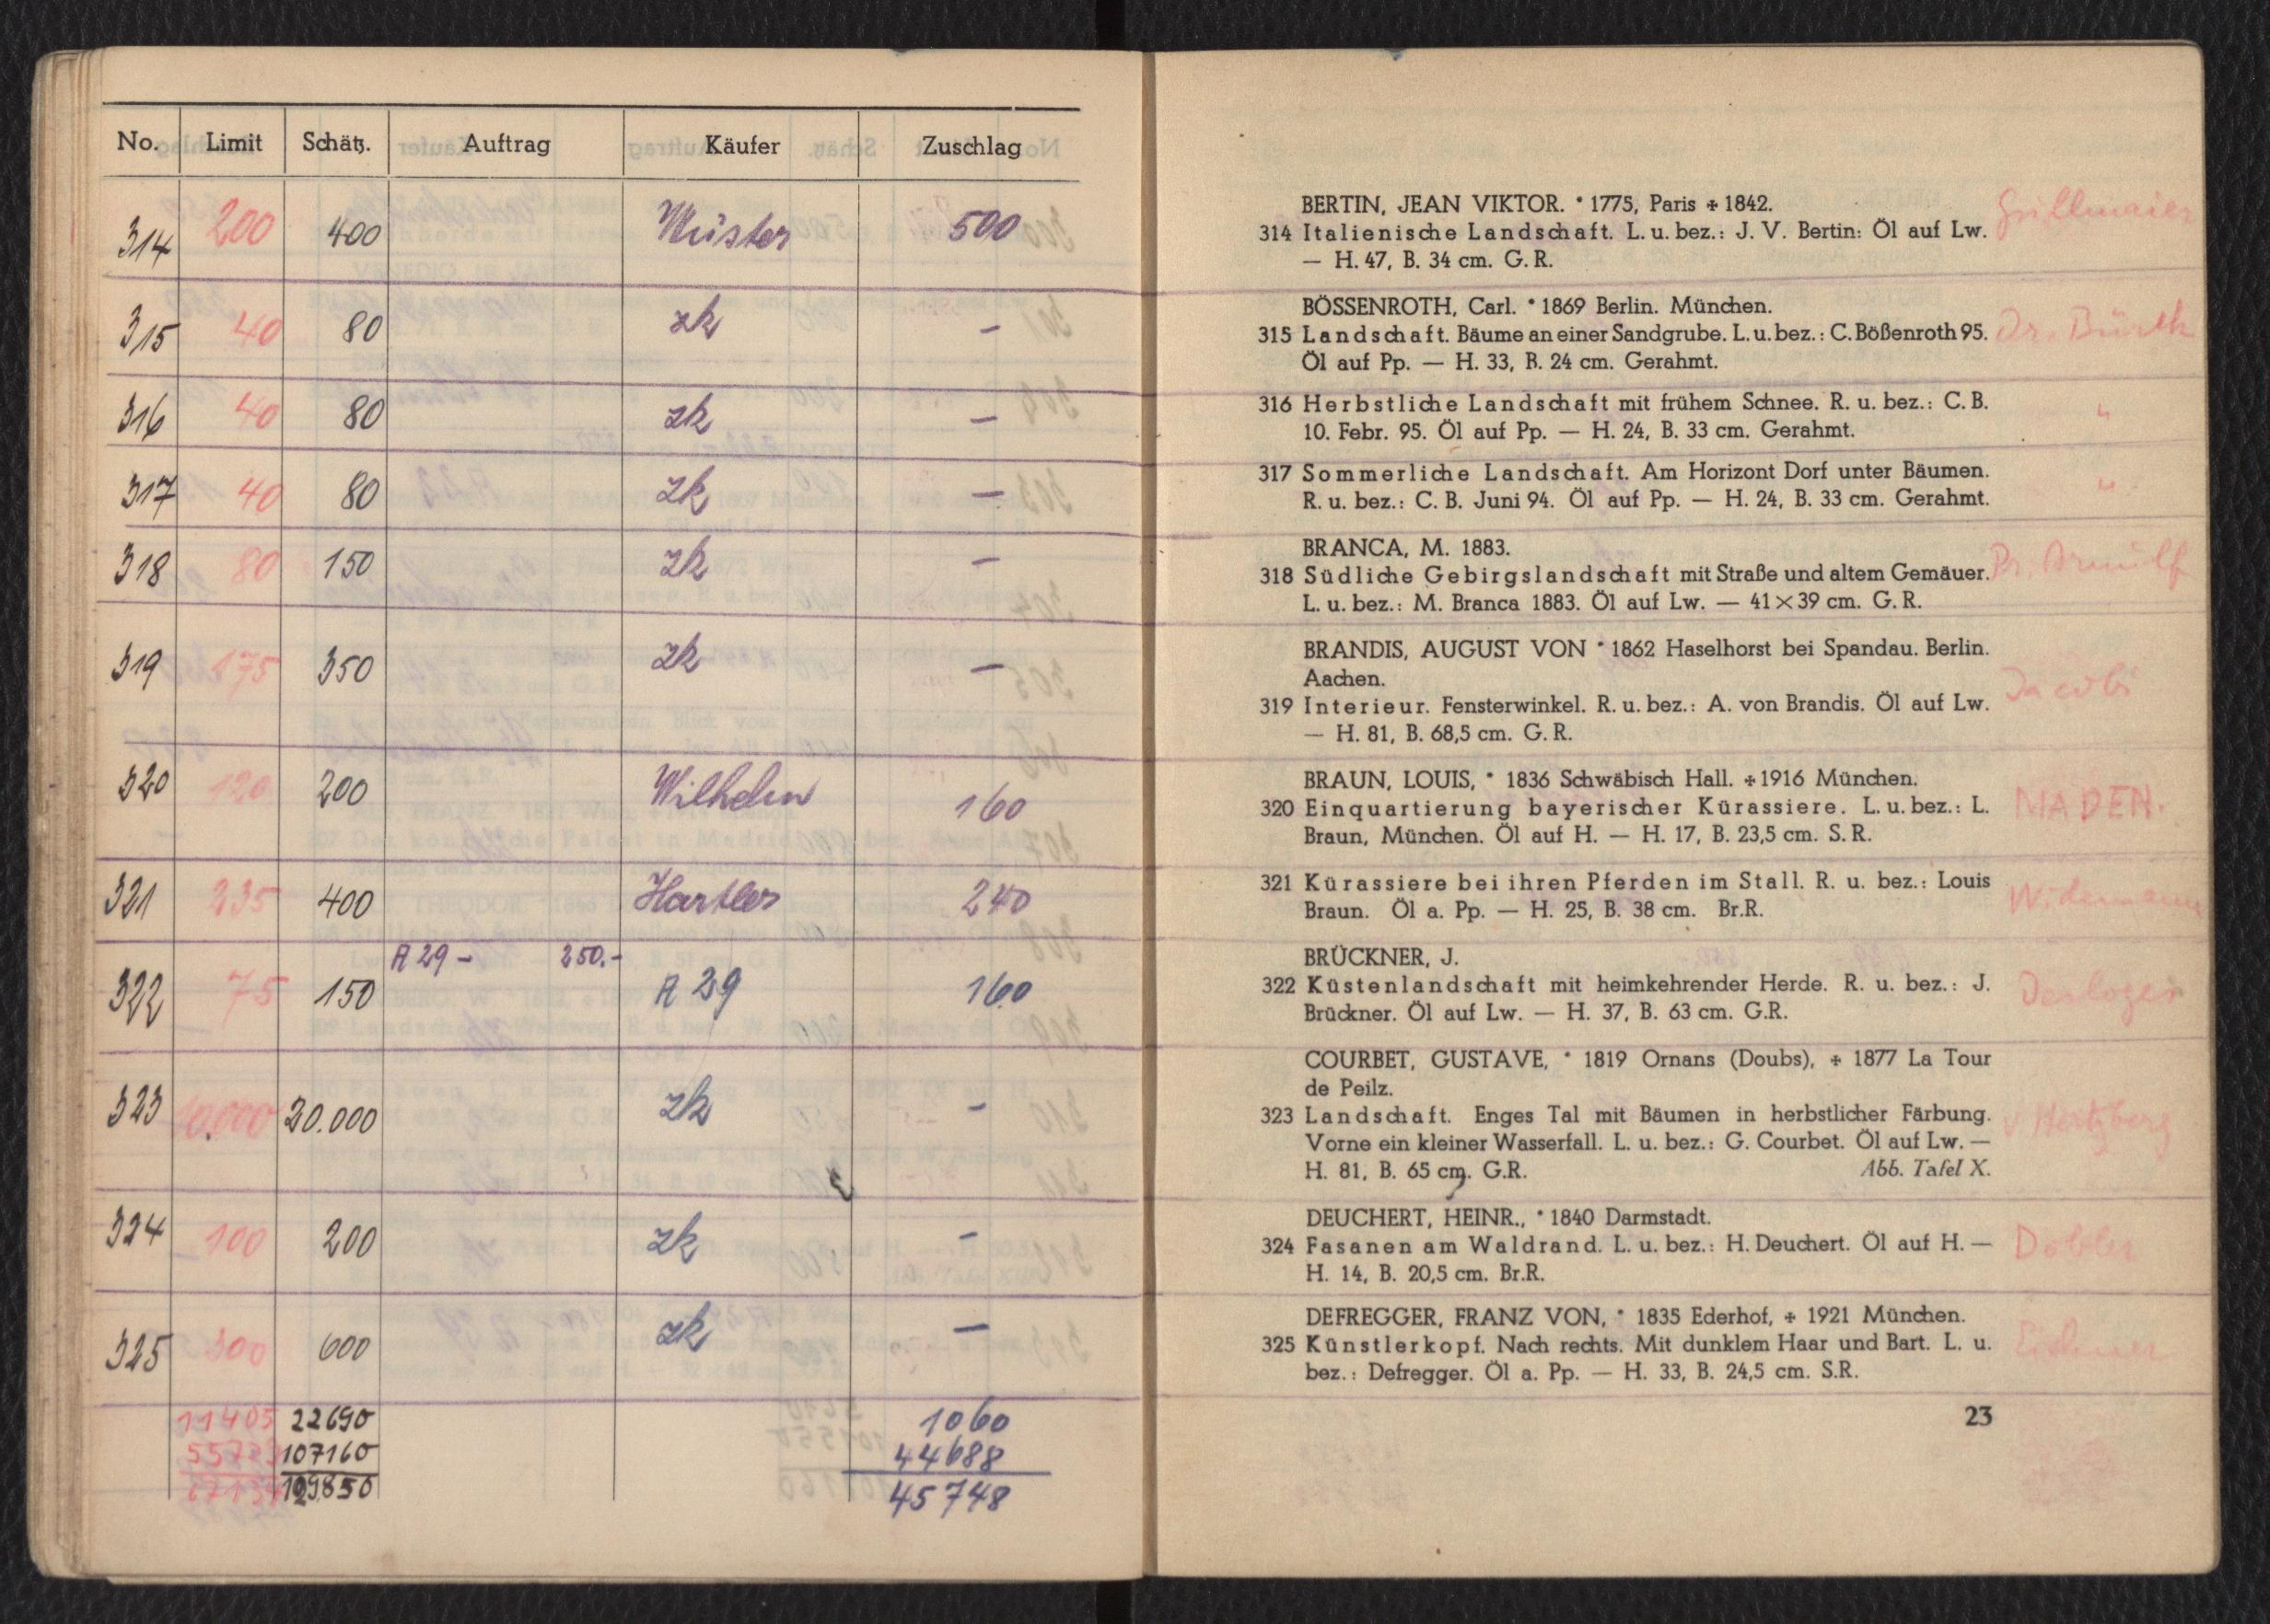 No. Limit Schätz. Auftrag Käufer Zuschlag
314 200 400 500
315 40 80 zk –
316 40 80 zk –
317 40 80 zk –
318 80 150 zk –
319 175 350 zk –
320 120 200 Wilhelm 160
321 235 400 240
A 29 – 250.–
322 75 150 A 29 160
323 10.000 20.000 zk –
324 100 200 zk –
325 300 600 zk –
11405 22690 1060
107160 44688
45748
BERTIN, JEAN VIKTOR. * 1775, Paris + 1842.
314 Italienische Landschaft. L. u. bez.: J. V. Bertin: Öl auf Lw.
— H. 47, B. 34 cm. G. R.
BÖSSENROTH, Carl. * 1869 Berlin. München.
315 Landschaft. Bäume an einer Sandgrube. L. u. bez.: C. Bößenroth 95.
Öl auf Pp. — H. 33, B. 24 cm. Gerahmt.
316 Herbstliche Landschaft mit frühem Schnee. R. u. bez.: C. B. "
10. Febr. 95. Öl auf Pp. — H. 24, B. 33 cm. Gerahmt.
317 Sommerliche Landschaft. Am Horizont Dorf unter Bäumen. "
R. u. bez.: C. B. Juni 94. Öl auf Pp. — H. 24, B. 33 cm. Gerahmt.
BRANCA, M. 1883.
318 Südliche Gebirgslandschaft mit Straße und altem Gemäuer.
L. u. bez.: M. Branca 1883. Öl auf Lw. — 41×39 cm. G. R.
BRANDIS, AUGUST VON * 1862 Haselhorst bei Spandau. Berlin.
Aachen. Jacobi
319 Interieur. Fensterwinkel. R. u. bez.: A. von Brandis. Öl auf Lw.
— H. 81, B. 68,5 cm. G. R.
BRAUN, LOUIS, * 1836 Schwäbisch Hall. +1916 München.
320 Einquartierung bayerischer Kürassiere. L. u. bez.: L. MADEN.
Braun, München. Öl auf H. — H. 17, B. 23,5 cm. S. R.
321 Kürassiere bei ihren Pferden im Stall. R. u. bez.: Louis Widemann
Braun. Öl a. Pp. — H. 25, B. 38 cm. Br.R.
BRÜCKNER, J.
322 Küstenlandschaft mit heimkehrender Herde. R. u. bez.: J.
Brückner. Öl auf Lw. — H. 37, B. 63 cm. G.R.
COURBET, GUSTAVE, * 1819 Ornans (Doubs), + 1877 La Tour
de Peilz.
323 Landschaft. Enges Tal mit Bäumen in herbstlicher Färbung. v Hertzberg
Vorne ein kleiner Wasserfall. L. u. bez.: G. Courbet. Öl auf Lw. —
H. 81, B. 65 cm. G.R. Abb. Tafel X.
DEUCHERT, HEINR., * 1840 Darmstadt.
324 Fasanen am Waldrand. L. u. bez.: H. Deuchert. Öl auf H. — Dobler
H. 14, B. 20,5 cm. Br.R.
DEFREGGER, FRANZ VON, * 1835 Ederhof, + 1921 München.
325 Künstlerkopf. Nach rechts. Mit dunklem Haar und Bart. L. u.
bez.: Defregger. Öl a. Pp. — H. 33, B. 24,5 cm. S.R.
23